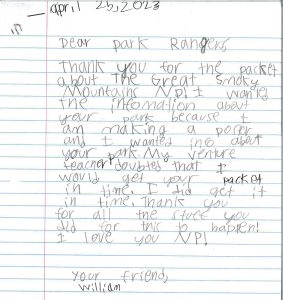 april 25, 2023
Dear park Rangers,
Thank you for the packet
about The Great Smoky
Mountains NP! I wanted
the infomation about
your park because I
am making a poster
and I wanted info about
your park. My venture
teacher doubted that I
would get your packet
in time. I did get it
in time. Thank you
for all the stuff you
did for this to happen!
I love you NP!
Your friend,
William